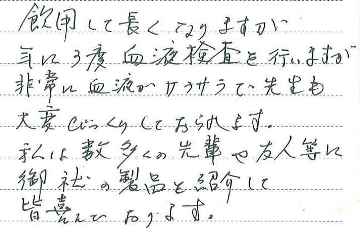 飲用して長くなりますが
年に3度血液検査を行いますが
非常に血液がサラサラで先生も
大変びっくりしておられます。
私は数多くの先輩や友人等に
御社の製品を紹介して
皆喜んでおります。